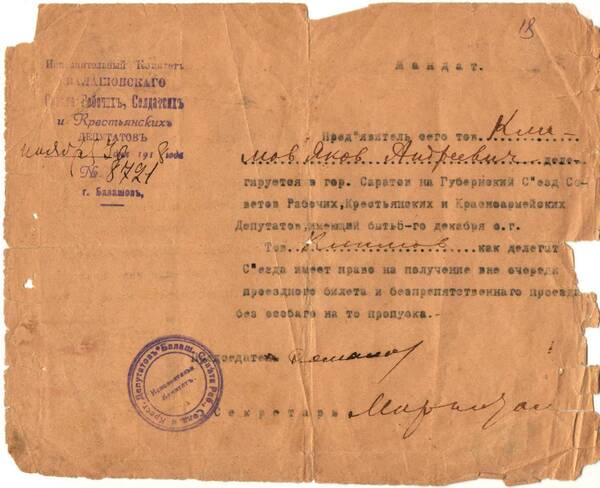 18
Исполнительный Комитетъ
БАЛАШОВСКАГО
Совѣта Рабочихъ, Солдатскихъ
и Крестьянскихъ
ДЕПУТАТОВЪ
ноября 30 дня 1918 года
№ 8721
г. Балашовъ.
Мандат.
Пред"явитель сего тов. Кли-
мов Яков Андреевич деле-
гируется в гор. Саратов на Губернский С"езд Со-
ветов Рабочих, Крестьянских и Красноармейских
Депутатов, имеющий быть 5-го декабря с.г.
Тов. Климов как делегат
С"езда имеет право на получение вне очереди
проездного билета и безпрепятственнаго проезда
без особаго на то пропуска.-
Председатель
Секретарь
Исполнительный
Комитетъ.